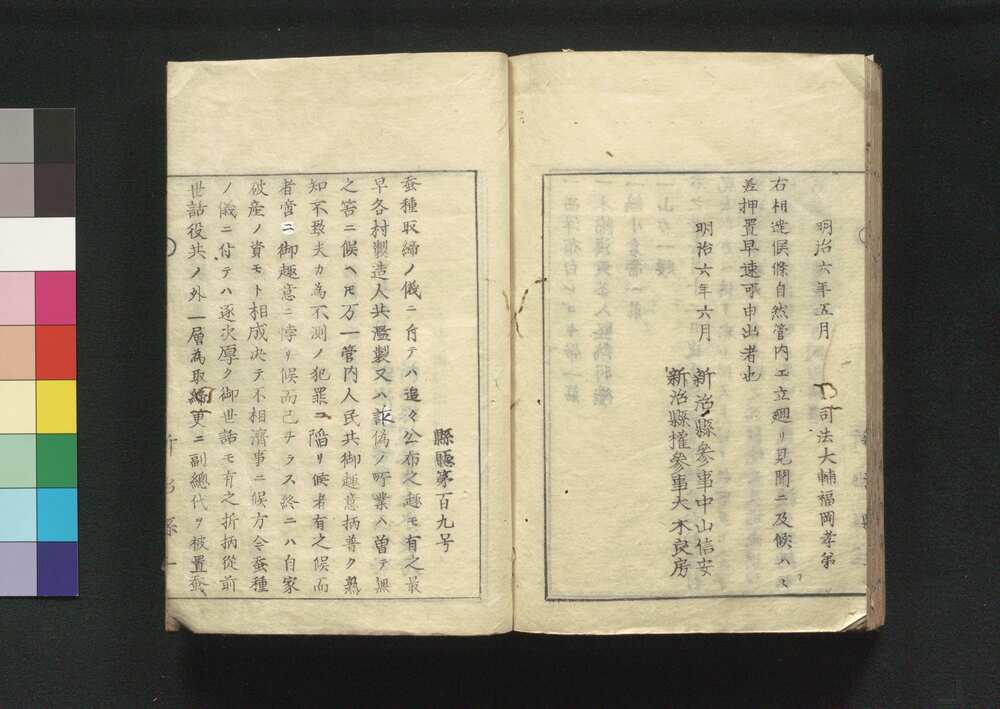 明治六年五月
司法大輔福岡孝弟
右相達候條自然管内エ立廻リ見聞ニ及候ハヽ
差押置早速可申出者也
明治六年六月
新治縣參事中山信安
新治縣權參事大木良房
縣廳第百九号
蚕種取締ノ儀ニ付テハ追々公布之趣モ有之最
早各村製造人共濫製又ハ詐偽ノ所業ハ曽テ無
之筈ニ候ヘ𪜈万一管内人民共御趣意柄普ク熟
知不致夫カ為不測ノ犯罪ニ陥リ候者有之候而
者啻ニ御趣意ニ悖リ候而已ナラス終ニハ自家
破産ノ資モト相成決テ不相濟事ニ候方今蚕種
ノ儀ニ付テハ逐次厚ク御世話モ有之折柄従前
世話役共ノ外一層為取締更ニ副總代ヲ被置蚕